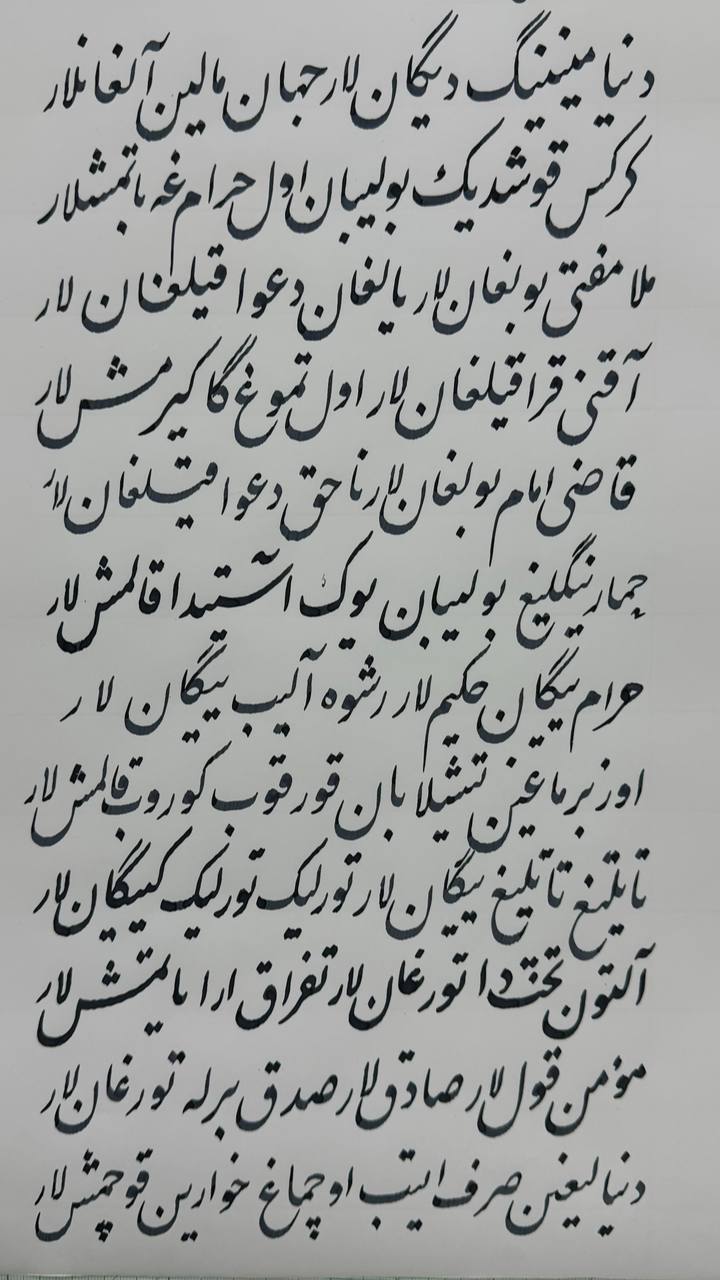 دنیا مینینگ دیگان لار جهان مالین آلغانلار
کرکس قوشدیک بولیبان اول حرام غه باتمشلار
ملا مفتی بولغان لار یالغان دعوا قیلغان لار
آقنی قرا قیلغان لار اول تموغ گا کیرمش لار
قاضی امام بولغان لار ناحق دعوا قیلغان لار
چمار نیگلیغ بولیبان یوک استیدا قالمش لار
حرام ییگان حکیم لار رشوه آلیب ییگان لار
اوز برماغین تیشلابان قورقوب کوروب قالمش لار
تاتلیغ تاتلیغ ییگان لار تورلیک تورلیک کییگان لار
آلتون تختدا تورغان لار تفراق ارا یاتمش لار
مؤمن قول لار صادق لار صدق برله تورغان لار
دنیالیغین صرف ایتیب اوچماغ خوارین قوچمش لار